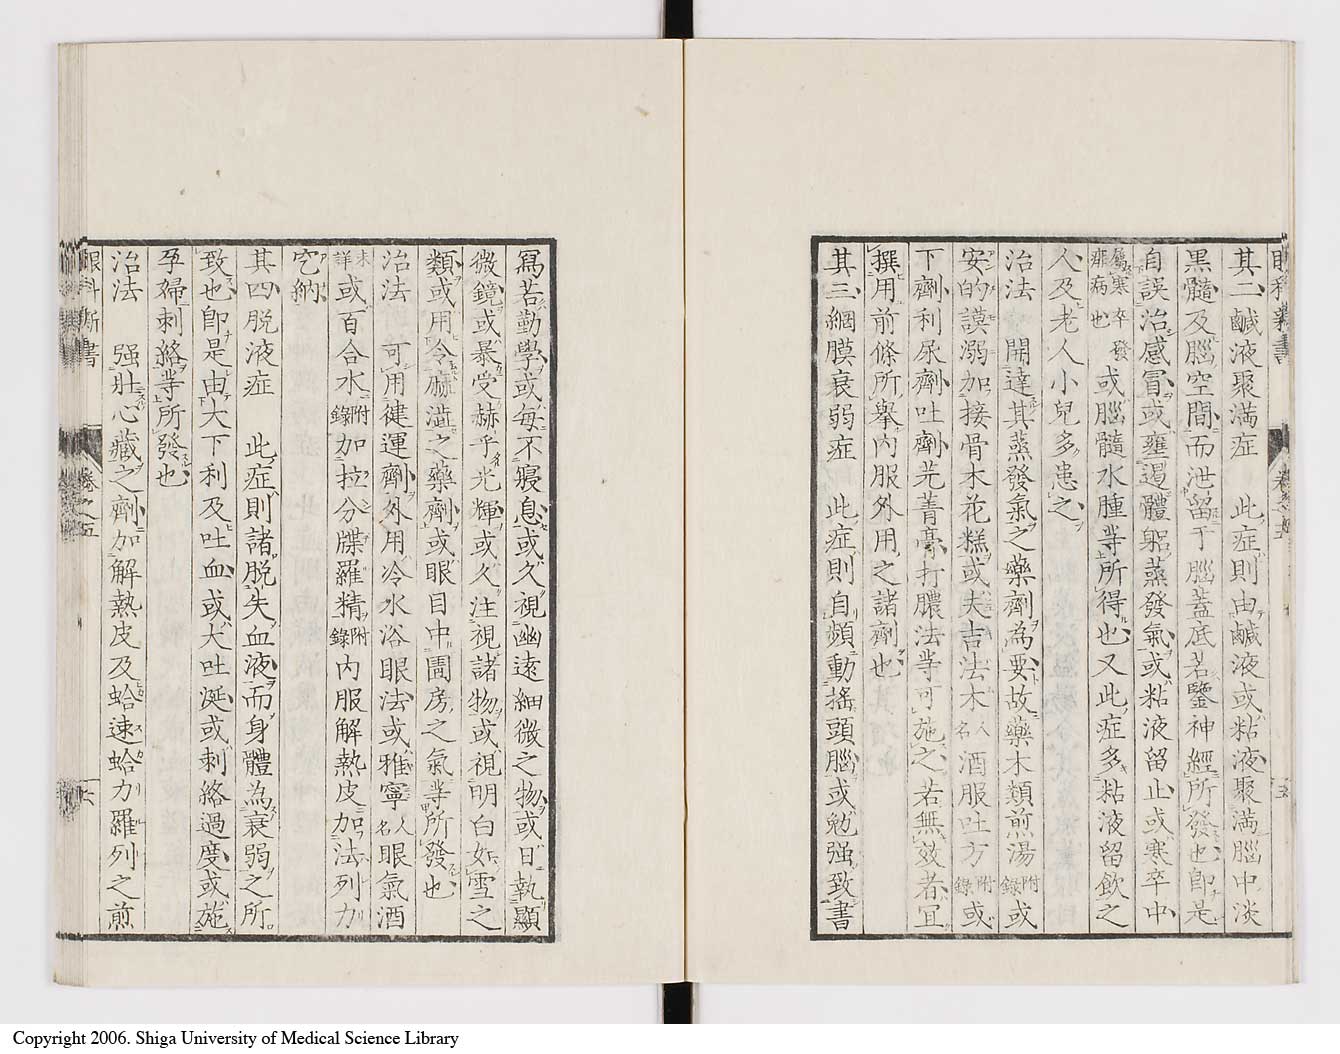 其二鹹液聚滿症　此症則由鹹液或粘液聚滿腦中淡
黒髓及腦空間而泄留于腦蓋底若鑒神經所發也卽是
自誤治感冒或壅遏體躬蒸發氣或粘液留止或寒卒中
屬寒卒發非病也或腦髓水腫等所得也又此症多粘液留飮之
人及老人小兒多患之
治法　開達其蒸發氣之藥劑為要故藥木類煎湯附錄或
安的謨溺加接骨木花糕或夫吉法木人名酒服吐方附錄或
下劑利尿劑吐劑芫菁膏打膿法等可施之若無效者宜
撰用前條所擧内服外用之諸劑也
其三網膜衰弱症　此症則自頻動搖頭腦或勉强致書
寫若勤學或每不寢息或久視幽遠細微之物或日執顯
微鏡或暴受赫乎光輝或久注視諸物或視明白如雪之
類或用令麻澁之藥劑或眼目中圊房之氣等所發也
治法　可用健運劑外用冷水浴眼法或雅寧人名眼氣酒
未詳或百合水附錄加拉分牒羅精附錄内服解熱皮加法列力
穵納
其四脱液症　此症則諸脱失血液而身體為衰弱之所
致也卽是由大下利及吐血或大吐涎或刺絡過度或施
孕婦刺絡等所發也
治法　强壯心藏之劑加解熱皮及蛤速蛤力羅列之煎
眼科新書
卷之五
六
Copyright 2006. Shiga University of Medical Science Library